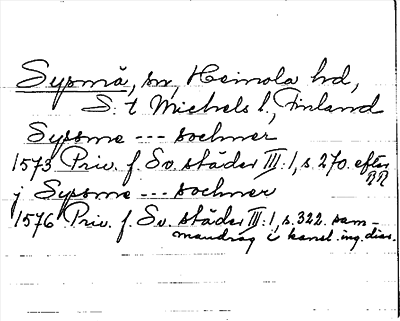 Sysmä, sn, Heinola hd,
S:t Michels l, Finland
Syssme --- sochner
1573 Priv. f. Sv. städer III:1, s 270. efter RR
j Syssme --- sochner
1576 Priv. f. Sv. städer III:1, s. 322. sam-
mandrag i kansl. ing. diar.